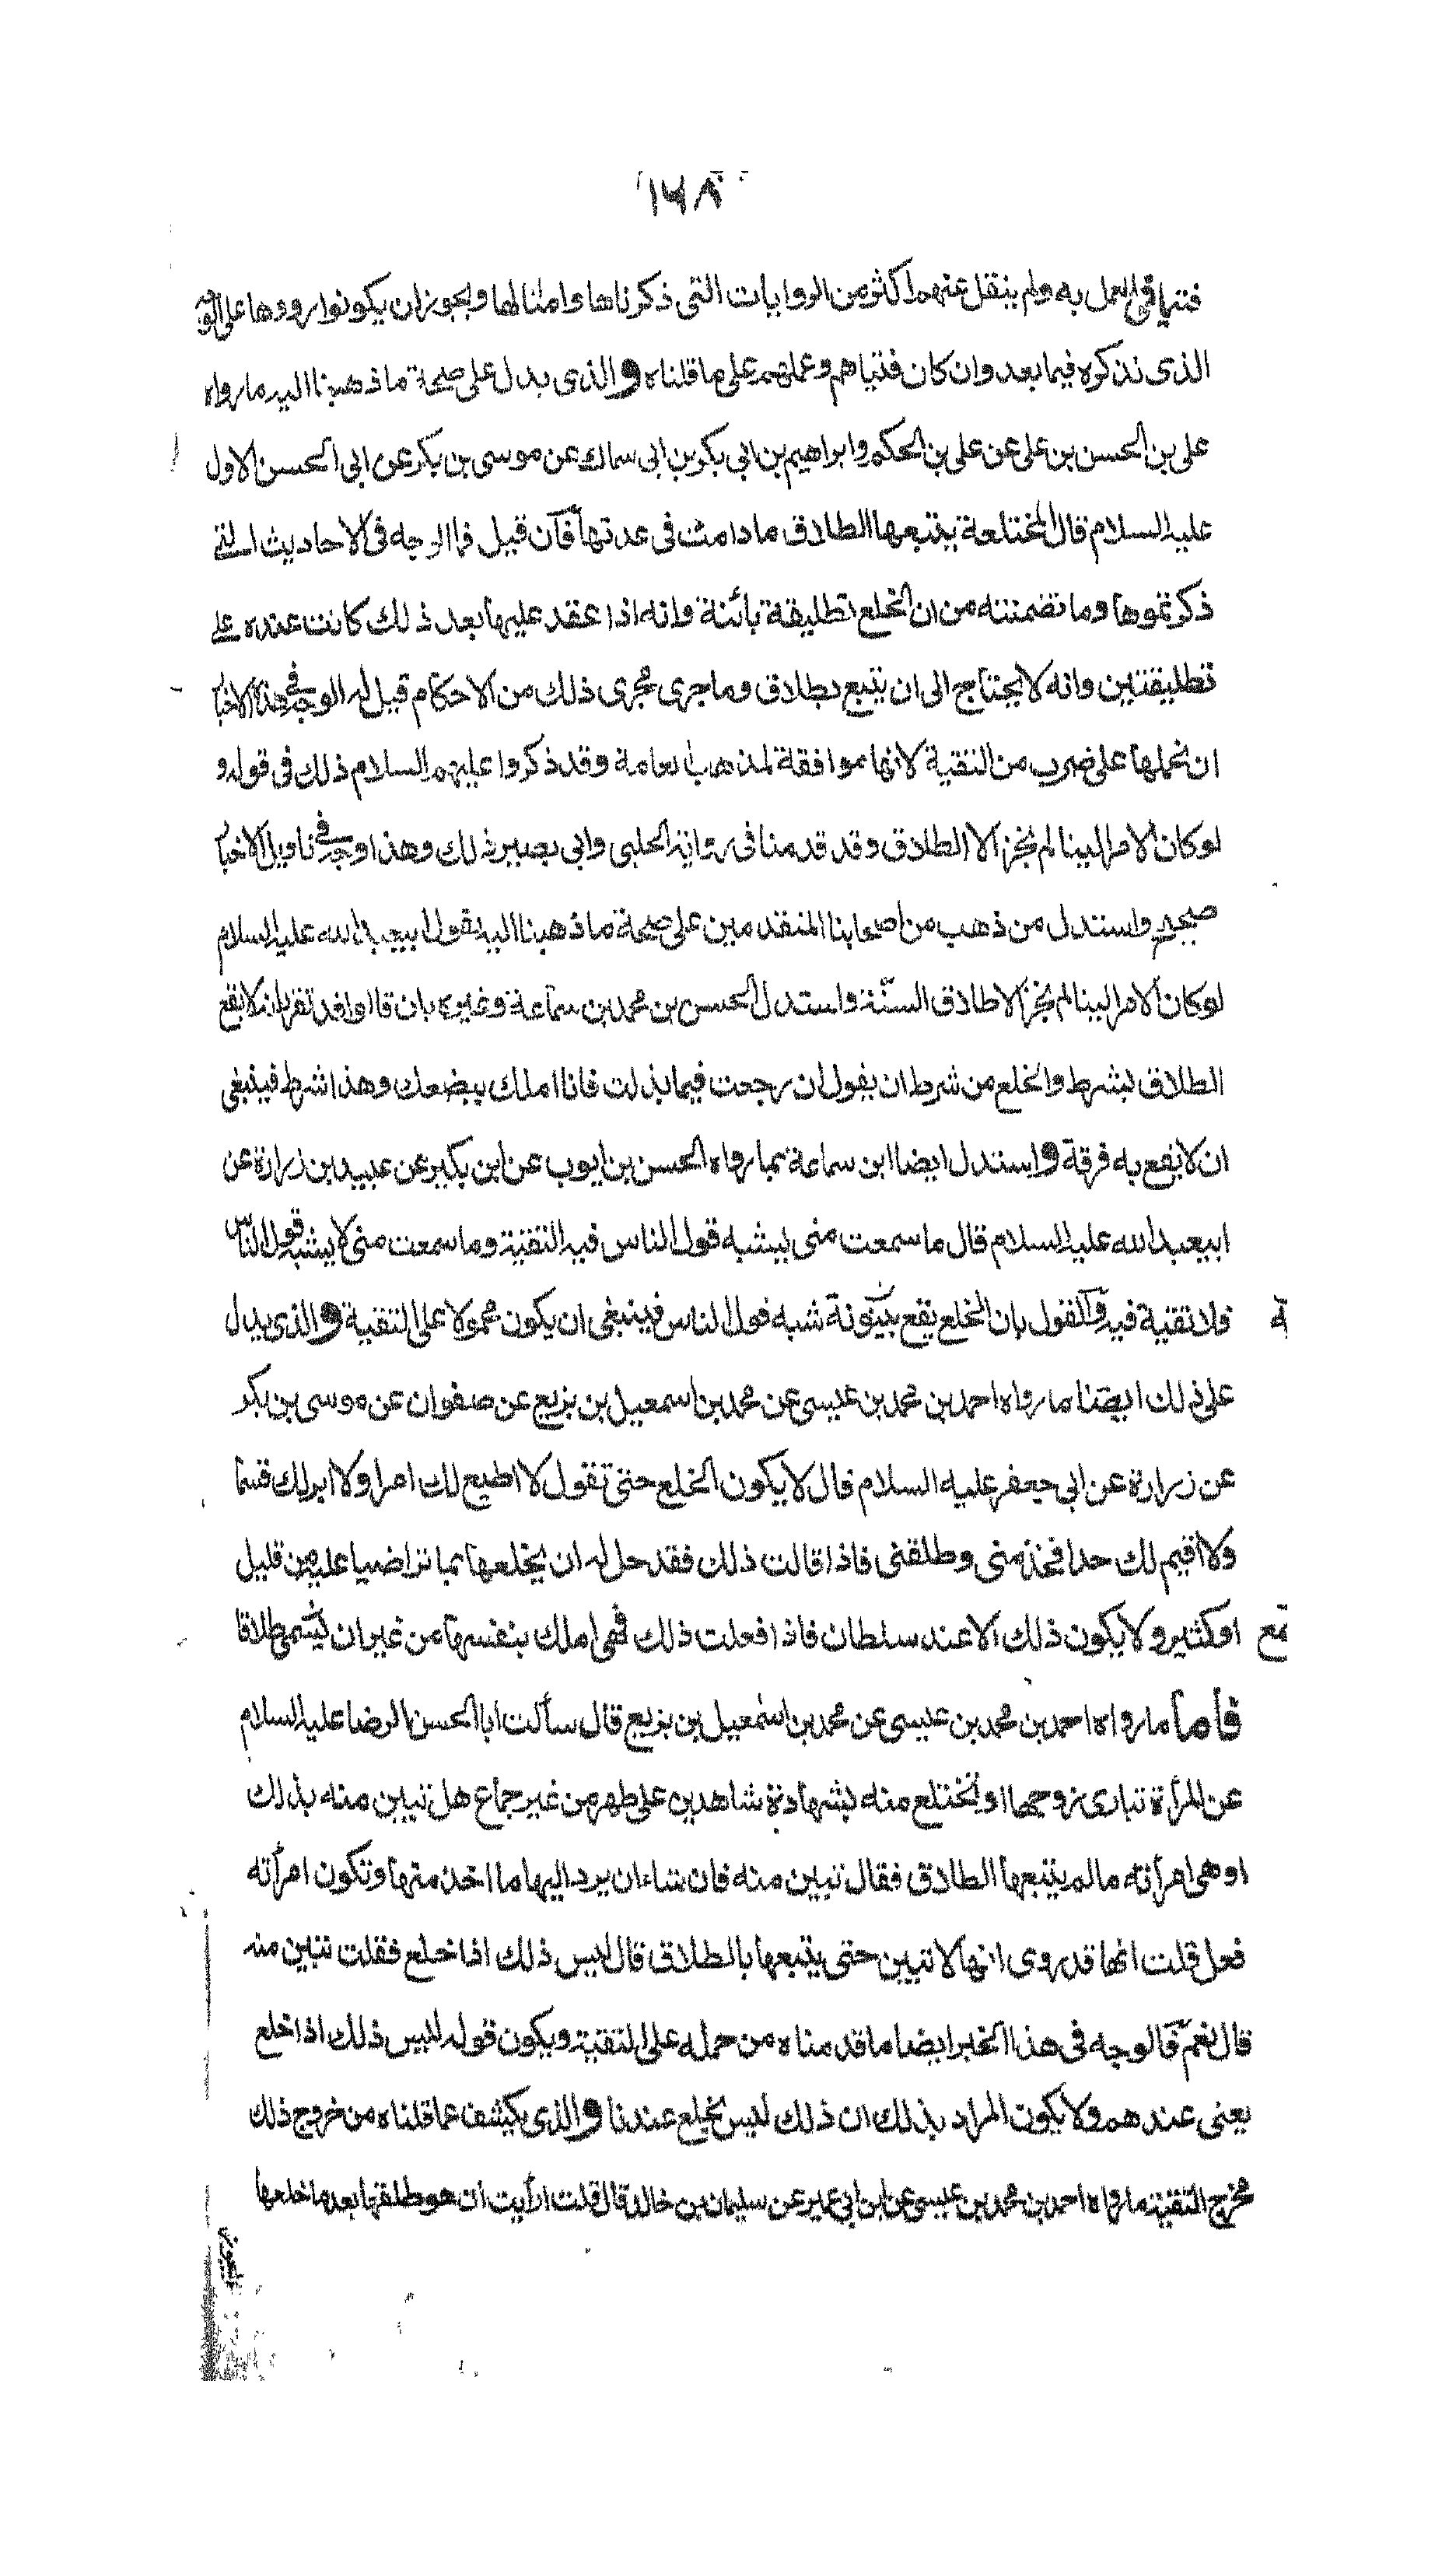 ١٦٨
فتيا في العمل به ولم ينقل عنهم اكثر من الروايات التي ذكرناها وامثالها ويجوز ان يكونوا رووها على الوجه
الذى نذكره فيما بعد وان كان فتياهم وعملهم على ما قلناه والذى يدل على صحة ما ذهبنا اليه ما رواه
على بن الحسن بن على عن على بن الحكم وابراهيم بن ابي بكر بن ابى سماك عن موسى بن بكر عن ابى الحسن الاول
عليه السلام قال المختلعة يتبعها الطلاق ما دامت فى عدتها فان قيل فما الوجه فى الاحاديث التى
ذكرتموها وما تضمنته من ان الخلع تطليقة بائنة وانه اذا عقد عليها بعد ذلك كانت عنده على
تطليقتين وانه لا يحتاج الى ان يتبع بطلاق وما جرى مجرى ذلك من الاحكام قيل له الوجه فى هذه الاخبار
ان نحملها على ضرب من التقية لانها موافقة لمذهب العامة وقد ذكروا عليهم السلام ذلك فى قولهم
لو كان الامر الينا لم نجز الا الطلاق وقد قدمنا فى رواية الحلبى وابى بصير ذلك وهذا وجه فى تاويل الاخبار
صحيح واستدل من ذهب من اصحابنا المتقدمين على صحة ما ذهبنا اليه بقول ابيعبد الله عليه السلام
لو كان الامر الينا لم نجز الا طلاق السنّة واستدل الحسن بن محمد بن سماعة وغيره بان قالوا قد تقرر انه لا يقع
الطلاق بشرط والخلع من شرط ان يقول ان رجعت فيما بذلت فانا املك ببضعك وهذا شرط فينبغى
ان لا يقع به فرقة واستدل ايضا ابن سماعة بما رواه الحسن بن ايوب عن ابن بكير عن عبيد بن زرارة عن
ابيعبد الله عليه السلام قال ما سمعت منى يشبه قول الناس فيه التقية وما سمعت منى لا يشبه قول الناس
فلا تقية فيه والقول بان الخلع يقع بينونة شبه قول الناس فينبغى ان يكون محمولا على التقية والذى يدل
على ذلك ايضا ما رواه احمد بن محمد بن عيسى عن محمد بن اسمعيل بن بزيع عن صفوان عن موسى بن بكر
عن زرارة عن ابي جعفر عليه السلام قال لا يكون الخلع حتى تقول لا اطيع لك امرا ولا ابر لك قسما
ولا اقيم لك حدا فخذ منى وطلقنى فاذا قالت ذلك فقد حل له ان يخلعها بما تراضيا عليه من قليل
او كثير ولا يكون ذلك الا عند سلطان فاذا فعلت ذلك فهى املك بنفسها من غير ان يسمى طلاقا
فأما ما رواه احمد بن محمد بن عيسى عن محمد بن اسمعيل بن بزيع قال سألت ابا الحسن الرضا عليه السلام
عن المرأة تبارى زوجها او تختلع منه بشهادة شاهدين على طهر من غير جماع هل تبين منه بذلك
او هى امرأته ما لم يتبعها الطلاق فقال تبين منه فان شاء ان يرد اليها ما اخذ منها وتكون امرأته
فعل قلت انها قد روى انها لا تبين حتى يتبعها بالطلاق قال ليس ذلك اذا خلع فقلت تبين منه
قال نعم فالوجه فى هذا الخبر ايضا ما قدمناه من حمله على التقية ويكون قوله ليس ذلك اذا خلع
يعنى عندهم ولا يكون المراد بذلك ان ذلك ليس بخلع عندنا والذى يكشف عما قلناه من خروج ذلك
مخرج التقية ما رواه احمد بن محمد بن عيسى عن ابن ابي عمير عن سليمان بن خالد قال قلت ارأيت ان هو طلقها بعد ما خلعها